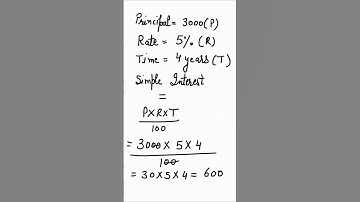 Principal = 3000(P)
Rate = 5% (R)
Time = 4 years (T)
Simple Interest
=
P×R×T
100
= 3000 × 5 × 4
100
= 30×5×4 = 600